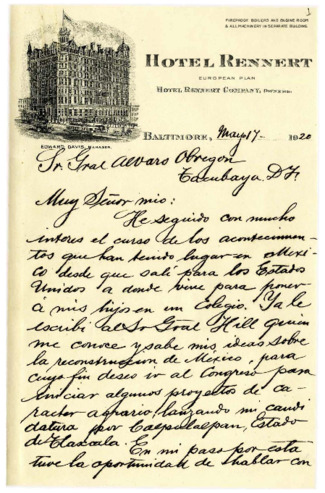 1
FIREPROOF BOILERS AND ENGINE ROOM
& ALL MACHINERY IN SEPARATE BUILDING
HOTEL RENNERT
EUROPEAN PLAN
HOTEL RENNERT COMPANY, OWNERS
EDWARD DAVIS, MANAGER.
BALTIMORE, May 17 1920
Sr. Gral Alvaro Obregón
Tacubaya. D.F.
Muy Señor mio:
He seguido con mucho
interes el curso de los acontecimien-
tos que han tenido lugar en Mexi-
co desde que salí para los Estados
Unidos a donde vine para poner
á mis hijos en un colegio. Ya le
escribí al Sr Gral Hill quien
me conoce y sabe mis ideas sobre
la reconstruccion de Mexico, para
cuyo fin deseo ir al Congreso para
iniciar algunos proyectos de ca-
racter agrario, lanzando mi candi
datura por Calpulalpan, Estado
de Tlaxcala. En mi paso por esta
tuve la oportunidad de hablar con